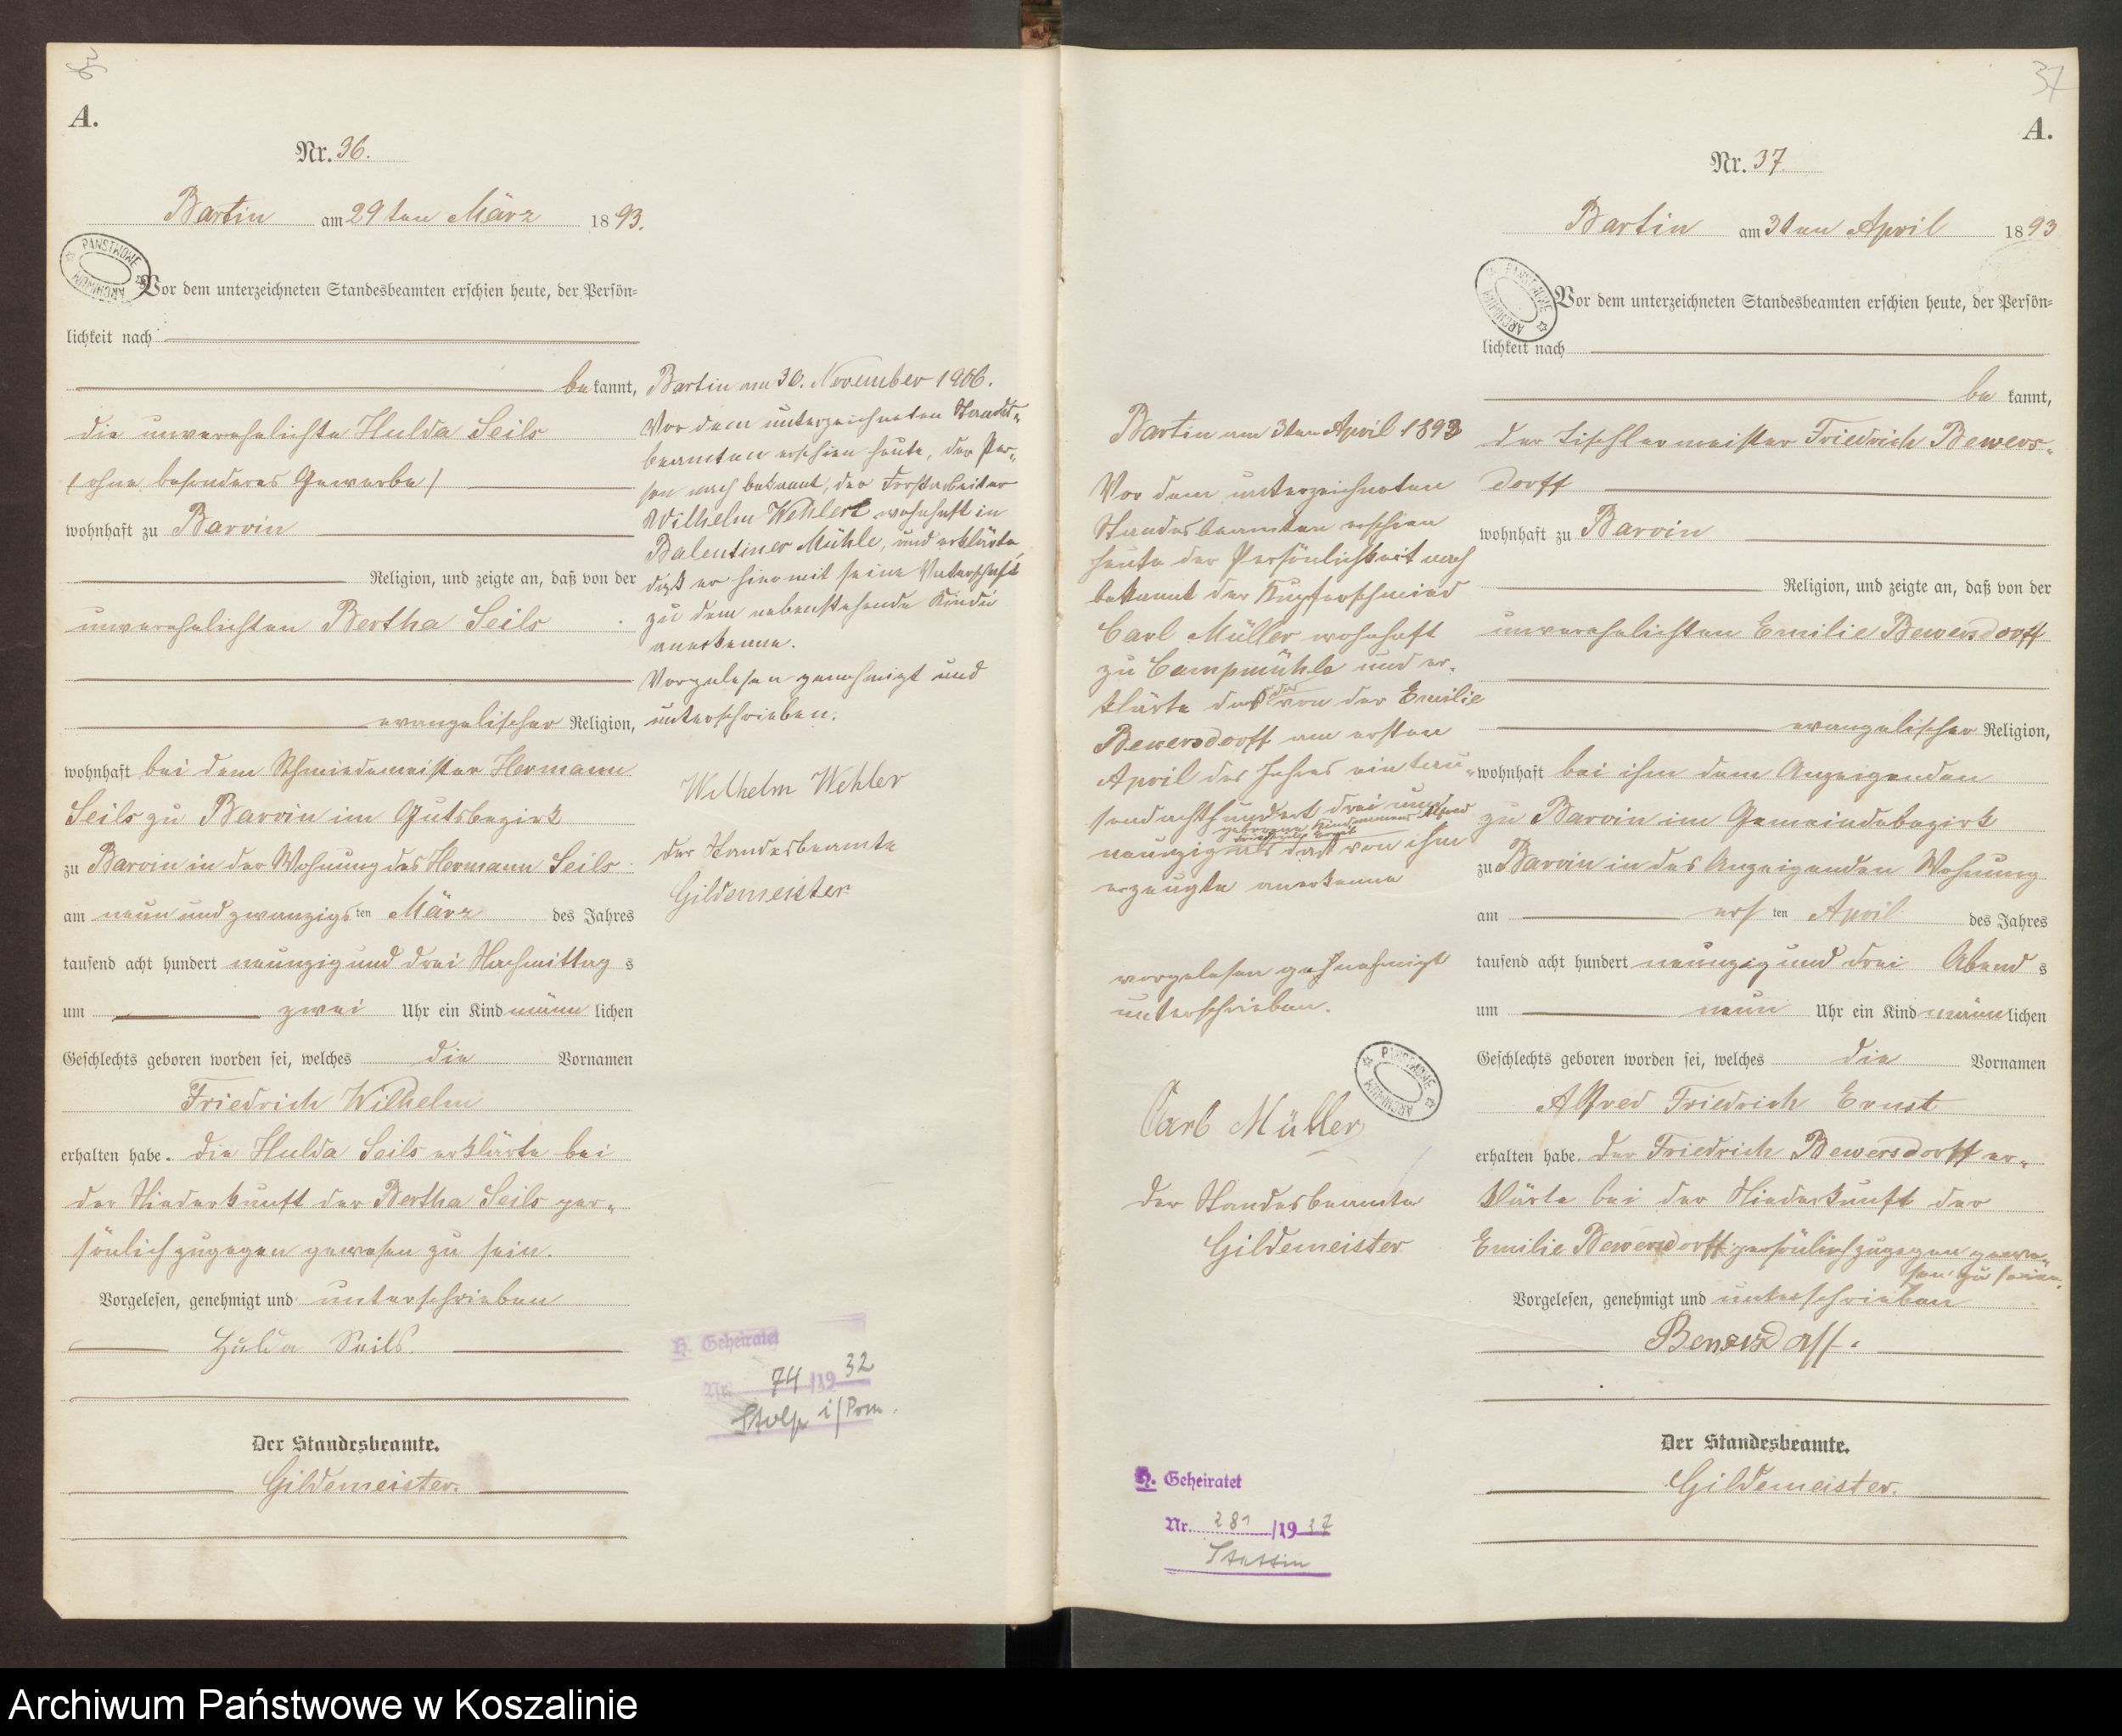 A.
Nr. 36.
Bartin am 29ten März 1893.
PAŃSTWOWE ARCHIWUM
Vor dem unterzeichneten Standesbeamten erschien heute, der Persön=
lichkeit nach
bekannt,
die unverehelichte Hulda Seils
(ohne besonderes Gewerbe)
wohnhaft zu Barvin
Religion, und zeigte an, daß von der
unverehelichten Bertha Seils
evangelischer Religion,
wohnhaft bei dem Schmiedemeister Hermann
Seils zu Barvin im Gutsbezirk
zu Barvin in der Wohnung des Hermann Seils
am neun und zwanzigsten März des Jahres
tausend acht hundert neunzig und drei Nachmittags
um zwei Uhr ein Kind männlichen
Geschlechts geboren worden sei, welches die Vornamen
Friedrich Wilhelm
erhalten habe. Die Hulda Seils erklärte bei
der Niederkunft der Bertha Seils per„
sönlich zugegen gewesen zu sein.
Vorgelesen, genehmigt und unterschrieben
Hulda Seils.
Der Standesbeamte.
Gildemeister.
Bartin am 30. November 1906.
Vor dem unterzeichneten Standes„
beamten erschien heute, der Per„
son nach bekannt, der Forstarbeiter
Wilhelm Wehler wohnhaft in
Balentiner Mühle, und erklärte,
daß er hiermit seine Vaterschaft
zu dem nebenstehende Kinde
anerkenne.
Vorgelesen genehmigt und
unterschrieben.
Wilhelm Wehler
der Standesbeamte
Gildemeister
H. Geheiratet
Nr. 74/1932
Stolp i/Pom.
37
A.
Nr. 37.
Bartin am 3ten April 1893
PAŃSTWOWE ARCHIWUM
Vor dem unterzeichneten Standesbeamten erschien heute, der Persön=
lichkeit nach
bekannt,
der Tischlermeister Friedrich Bewers„
dorff
wohnhaft zu Barvin
Religion, und zeigte an, daß von der
unverehelichten Emilie Bewersdorff
evangelischer Religion,
wohnhaft bei ihm dem Anzeigenden
zu Barvin im Gemeindebezirk
zu Barvin in des Anzeigenden Wohnung
am ersten April des Jahres
tausend acht hundert neunzig und drei Abends
um neun Uhr ein Kind männlichen
Geschlechts geboren worden sei, welches die Vornamen
Alfred Friedrich Ernst
erhalten habe. Der Friedrich Bewersdorff er„
klärte bei der Niederkunft der
Emilie Bewersdorff persönlich zugegen gewe„
sen zu sein.
Vorgelesen, genehmigt und unterschrieben
Bewersdorff.
Der Standesbeamte.
Gildemeister.
Bartin am 3ten April 1893
Vor dem unterzeichneten
Standesbeamten erschien
heute der Persönlichkeit nach
bekannt der Kupferschmied
Carl Müller wohnhaft
zu Campmühle und er„
klärte das der von der Emilie
Bewersdorff am ersten
April des Jahres ein tau„
send achthundert drei und
geborene Kind Alfred
neunzig als von ihm
erzeugte anerkenne
vorgelesen genehmigt
unterschrieben.
PAŃSTWOWE ARCHIWUM
Carl Müller
Der Standesbeamte
Gildemeister
H. Geheiratet
Nr. 281/1917
Stettin
Archiwum Państwowe w Koszalinie